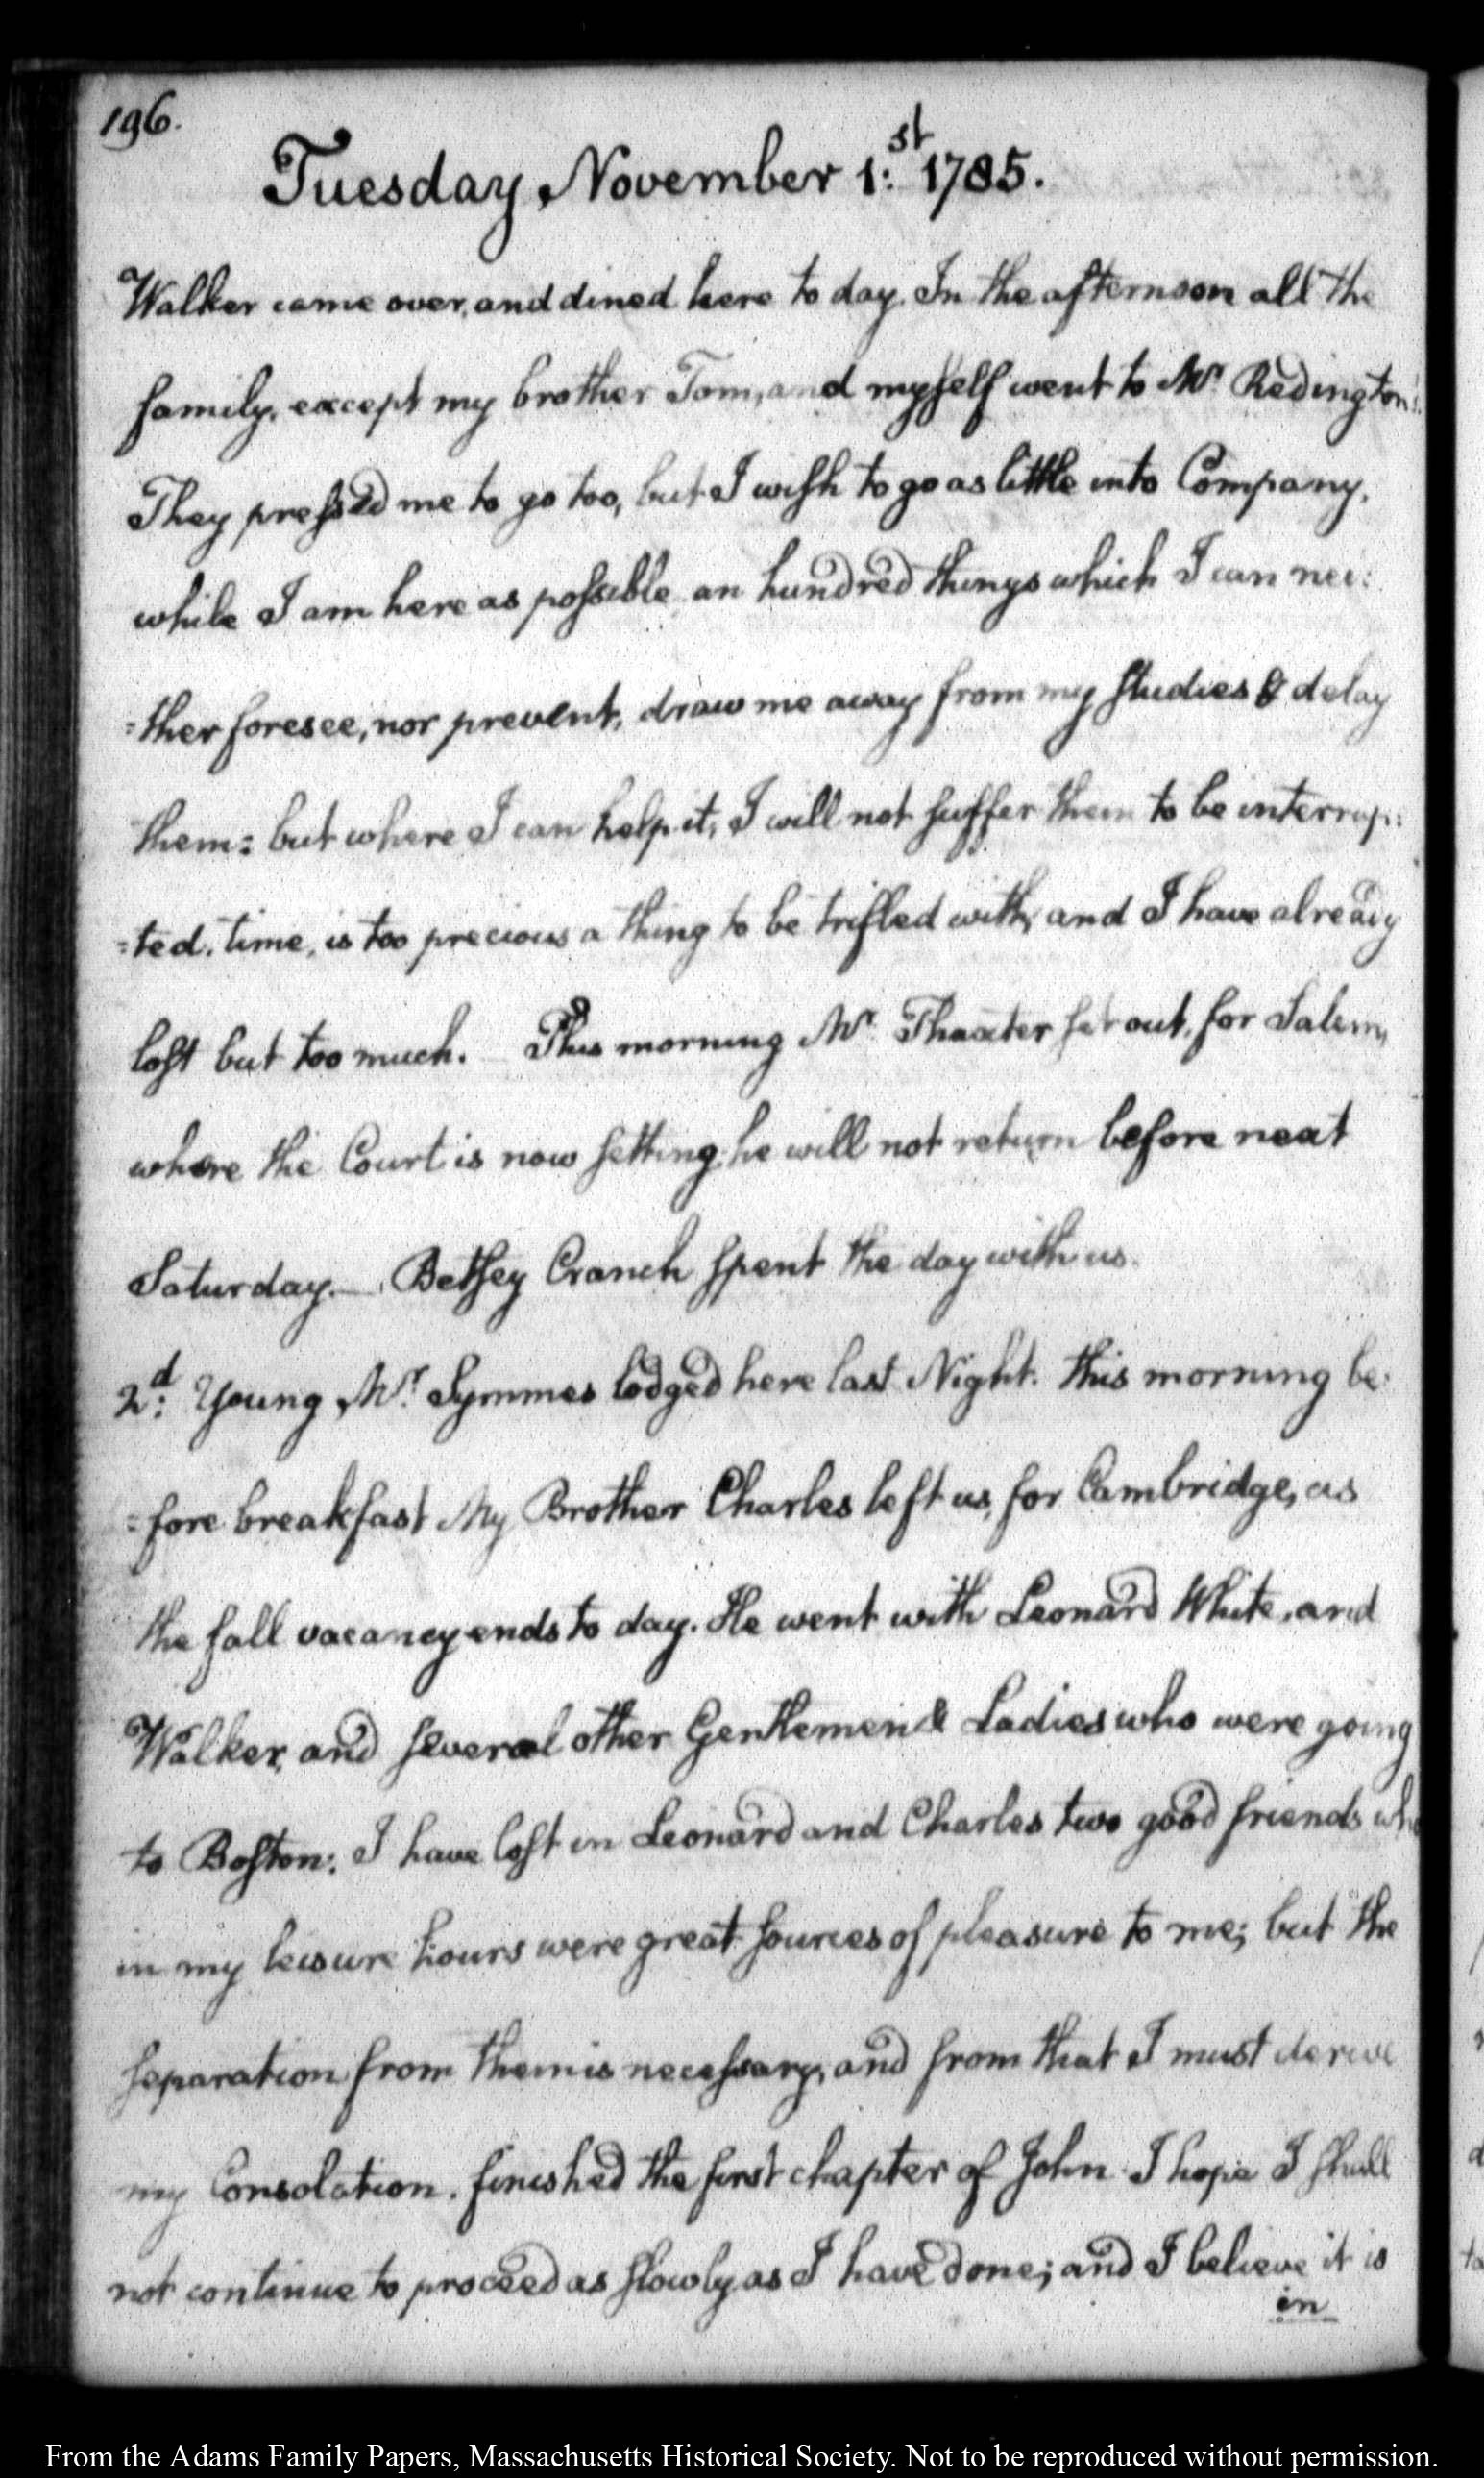 196.
Tuesday November 1:st 1785.
Walker came over, and dined here to day. In the afternoon all the
family, except my brother Tom, and myself went to Mr. Redington's.
They pressed me to go too, but I wish to go as little into Company,
while I am here as possible. an hundred things which I can nei:
=ther foresee, nor prevent, draw me away from my studies & delay
them: but where I can help it, I will not suffer them to be interrup:
=ted. time, is too precious a thing to be trifled with, and I have already
lost but too much. This morning Mr. Thaxter set out, for Salem,
where the Court is now setting; he will not return before next
Saturday.— Betsey Cranch spent the day with us.
2d: Young Mr. Symmes lodged here last Night. this morning be:
=fore breakfast My Brother Charles left us, for Cambridge, as
the fall vacancy ends to day. He went with Leonard White, and
Walker, and several other Gentlemen & Ladies who were going
to Boston: I have lost in Leonard and Charles two good friends who
in my leisure hours were great sources of pleasure to me; but the
separation from them is necessary, and from that I must derive
my Consolation. finished the first chapter of John. I hope I shall
not continue to proceed as slowly as I have done; and I believe it is
in
From the Adams Family Papers, Massachusetts Historical Society. Not to be reproduced without permission.